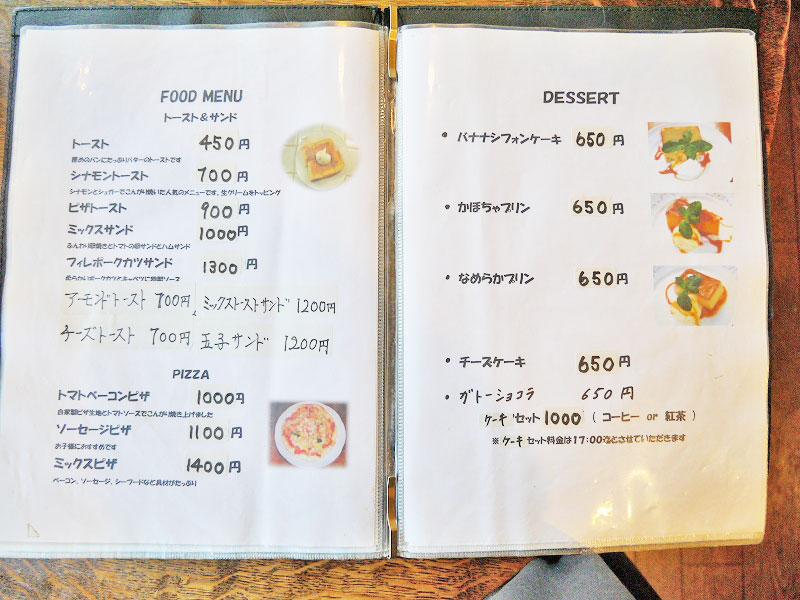 FOOD MENU
トースト&サンド
トースト 450円
厚めのパンにたっぷりバターのトーストです
シナモントースト 700円
シナモンとシュガーでこんがり焼いた人気のメニューです。生クリームをトッピング
ピザトースト 900円
ミックスサンド 1000円
ふんわり卵焼きとトマトの卵サンドとハムサンド
フィレポークカツサンド 1300円
柔らかいポークカツとキャベツに特製ソース
アーモンドトースト 700円、ミックストーストサンド 1200円
チーズトースト 700円 玉子サンド 1200円
PIZZA
トマトベーコンピザ 1000円
自家製ピザ生地とトマトソースでこんがり焼き上げました
ソーセージピザ 1100円
お子様におすすめです
ミックスピザ 1400円
ベーコン、ソーセージ、シーフードなど具材がたっぷり
DESSERT
• バナナシフォンケーキ 650円
• かぼちゃプリン 650円
• なめらかプリン 650円
• チーズケーキ 650円
• ガトーショコラ 650円
ケーキセット 1000 ( コーヒー or 紅茶 )
※ケーキセット料金は17:00迄とさせていただきます